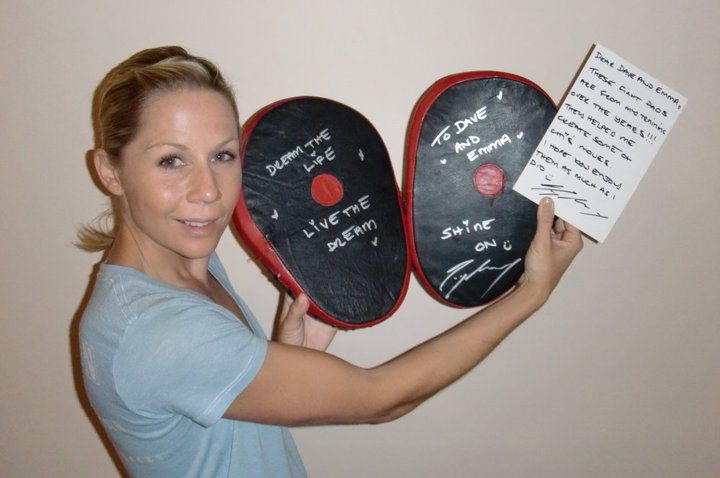 DREAM THE
LIFE
LIVE THE
DREAM
TO DAVE
AND
EMMA
SHINE
ON
DEAR DAVE AND EMMA,
THESE FIGHT PADS
ARE FROM MY TRAINING
OVER THE YEARS!!!
THEY HELPED ME
CREATE SOME OF
MOVES.
I HOPE YOU ENJOY
THEM AS MUCH AS I
DID